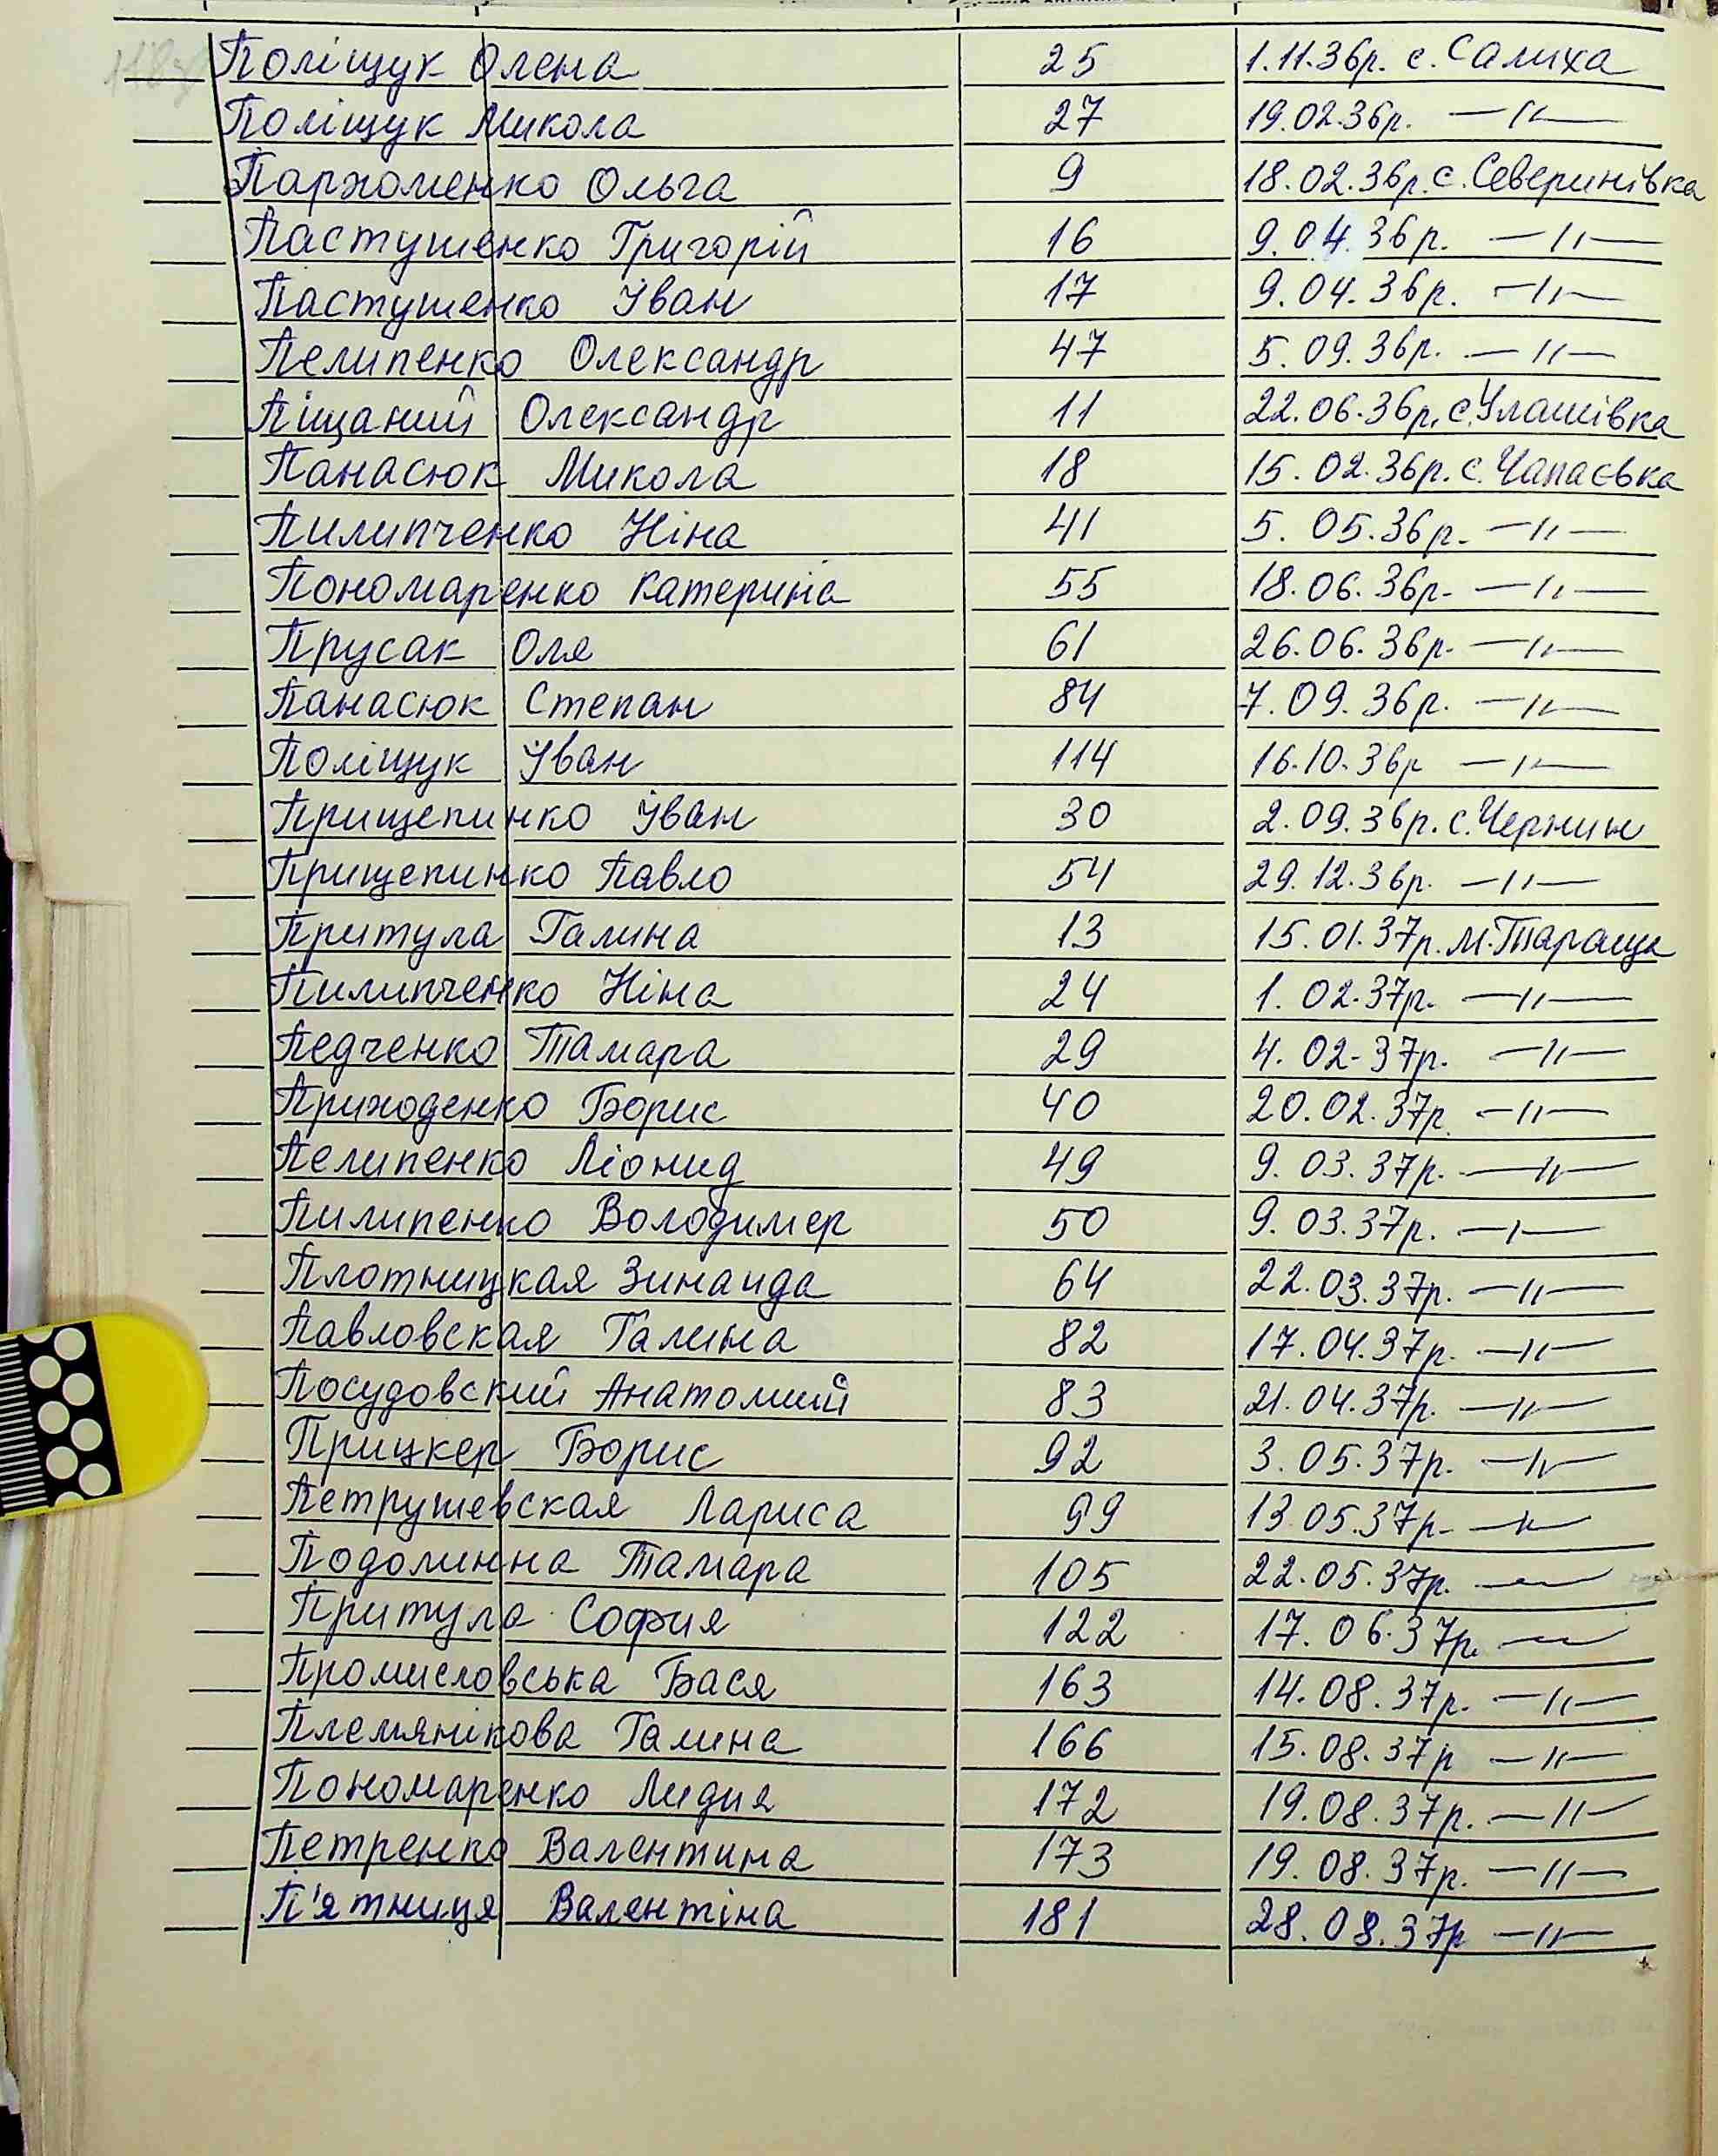 Поліщук Олена 25 1.11.36р. с. Салиха
Поліщук Микола 27 19.02.36р. —"—
Пархоменко Ольга 9 18.02.36р. с. Северинівка
Пастушенко Григорій 16 9.04.36р. —"—
Пастушенко Іван 17 9.04.36р. —"—
Пелипенко Олександр 47 5.09.36р. —"—
Піщаний Олександр 11 22.06.36р. с. Улашівка
Панасюк Микола 18 15.02.36р. с. Чапаєвка
Пилипченко Ніна 41 5.05.36р. —"—
Пономаренко Катерина 55 18.06.36р. —"—
Прусак Оля 61 26.06.36р. —"—
Панасюк Степан 84 7.09.36р. —"—
Поліщук Іван 114 16.10.36р —"—
Прищепинко Іван 30 2.09.36р. с. Чернин
Прищепинко Павло 54 29.12.36р. —"—
Притула Галина 13 15.01.37р. м. Тараща
Пилипченко Ніна 24 1.02.37р. —"—
Педченко Тамара 29 4.02.37р. —"—
Приходенко Борис 40 20.02.37р. —"—
Пелипенко Ліонид 49 9.03.37р. —"—
Пилипенко Володимер 50 9.03.37р. —"—
Плотницкая Зинаида 64 22.03.37р. —"—
Павловская Галина 82 17.04.37р. —"—
Посудовский Анатолий 83 21.04.37р. —"—
Прицкер Борис 92 3.05.37р. —"—
Петрушевская Лариса 99 13.05.37р. —"—
Подолинна Тамара 105 22.05.37р. —"—
Притула София 122 17.06.37р. —"—
Промисловська Бася 163 14.08.37р. —"—
Племянікова Галина 166 15.08.37р —"—
Пономаренко Лидия 172 19.08.37р. —"—
Петренко Валентина 173 19.08.37р. —"—
П'ятниця Валентіна 181 28.08.37р —"—